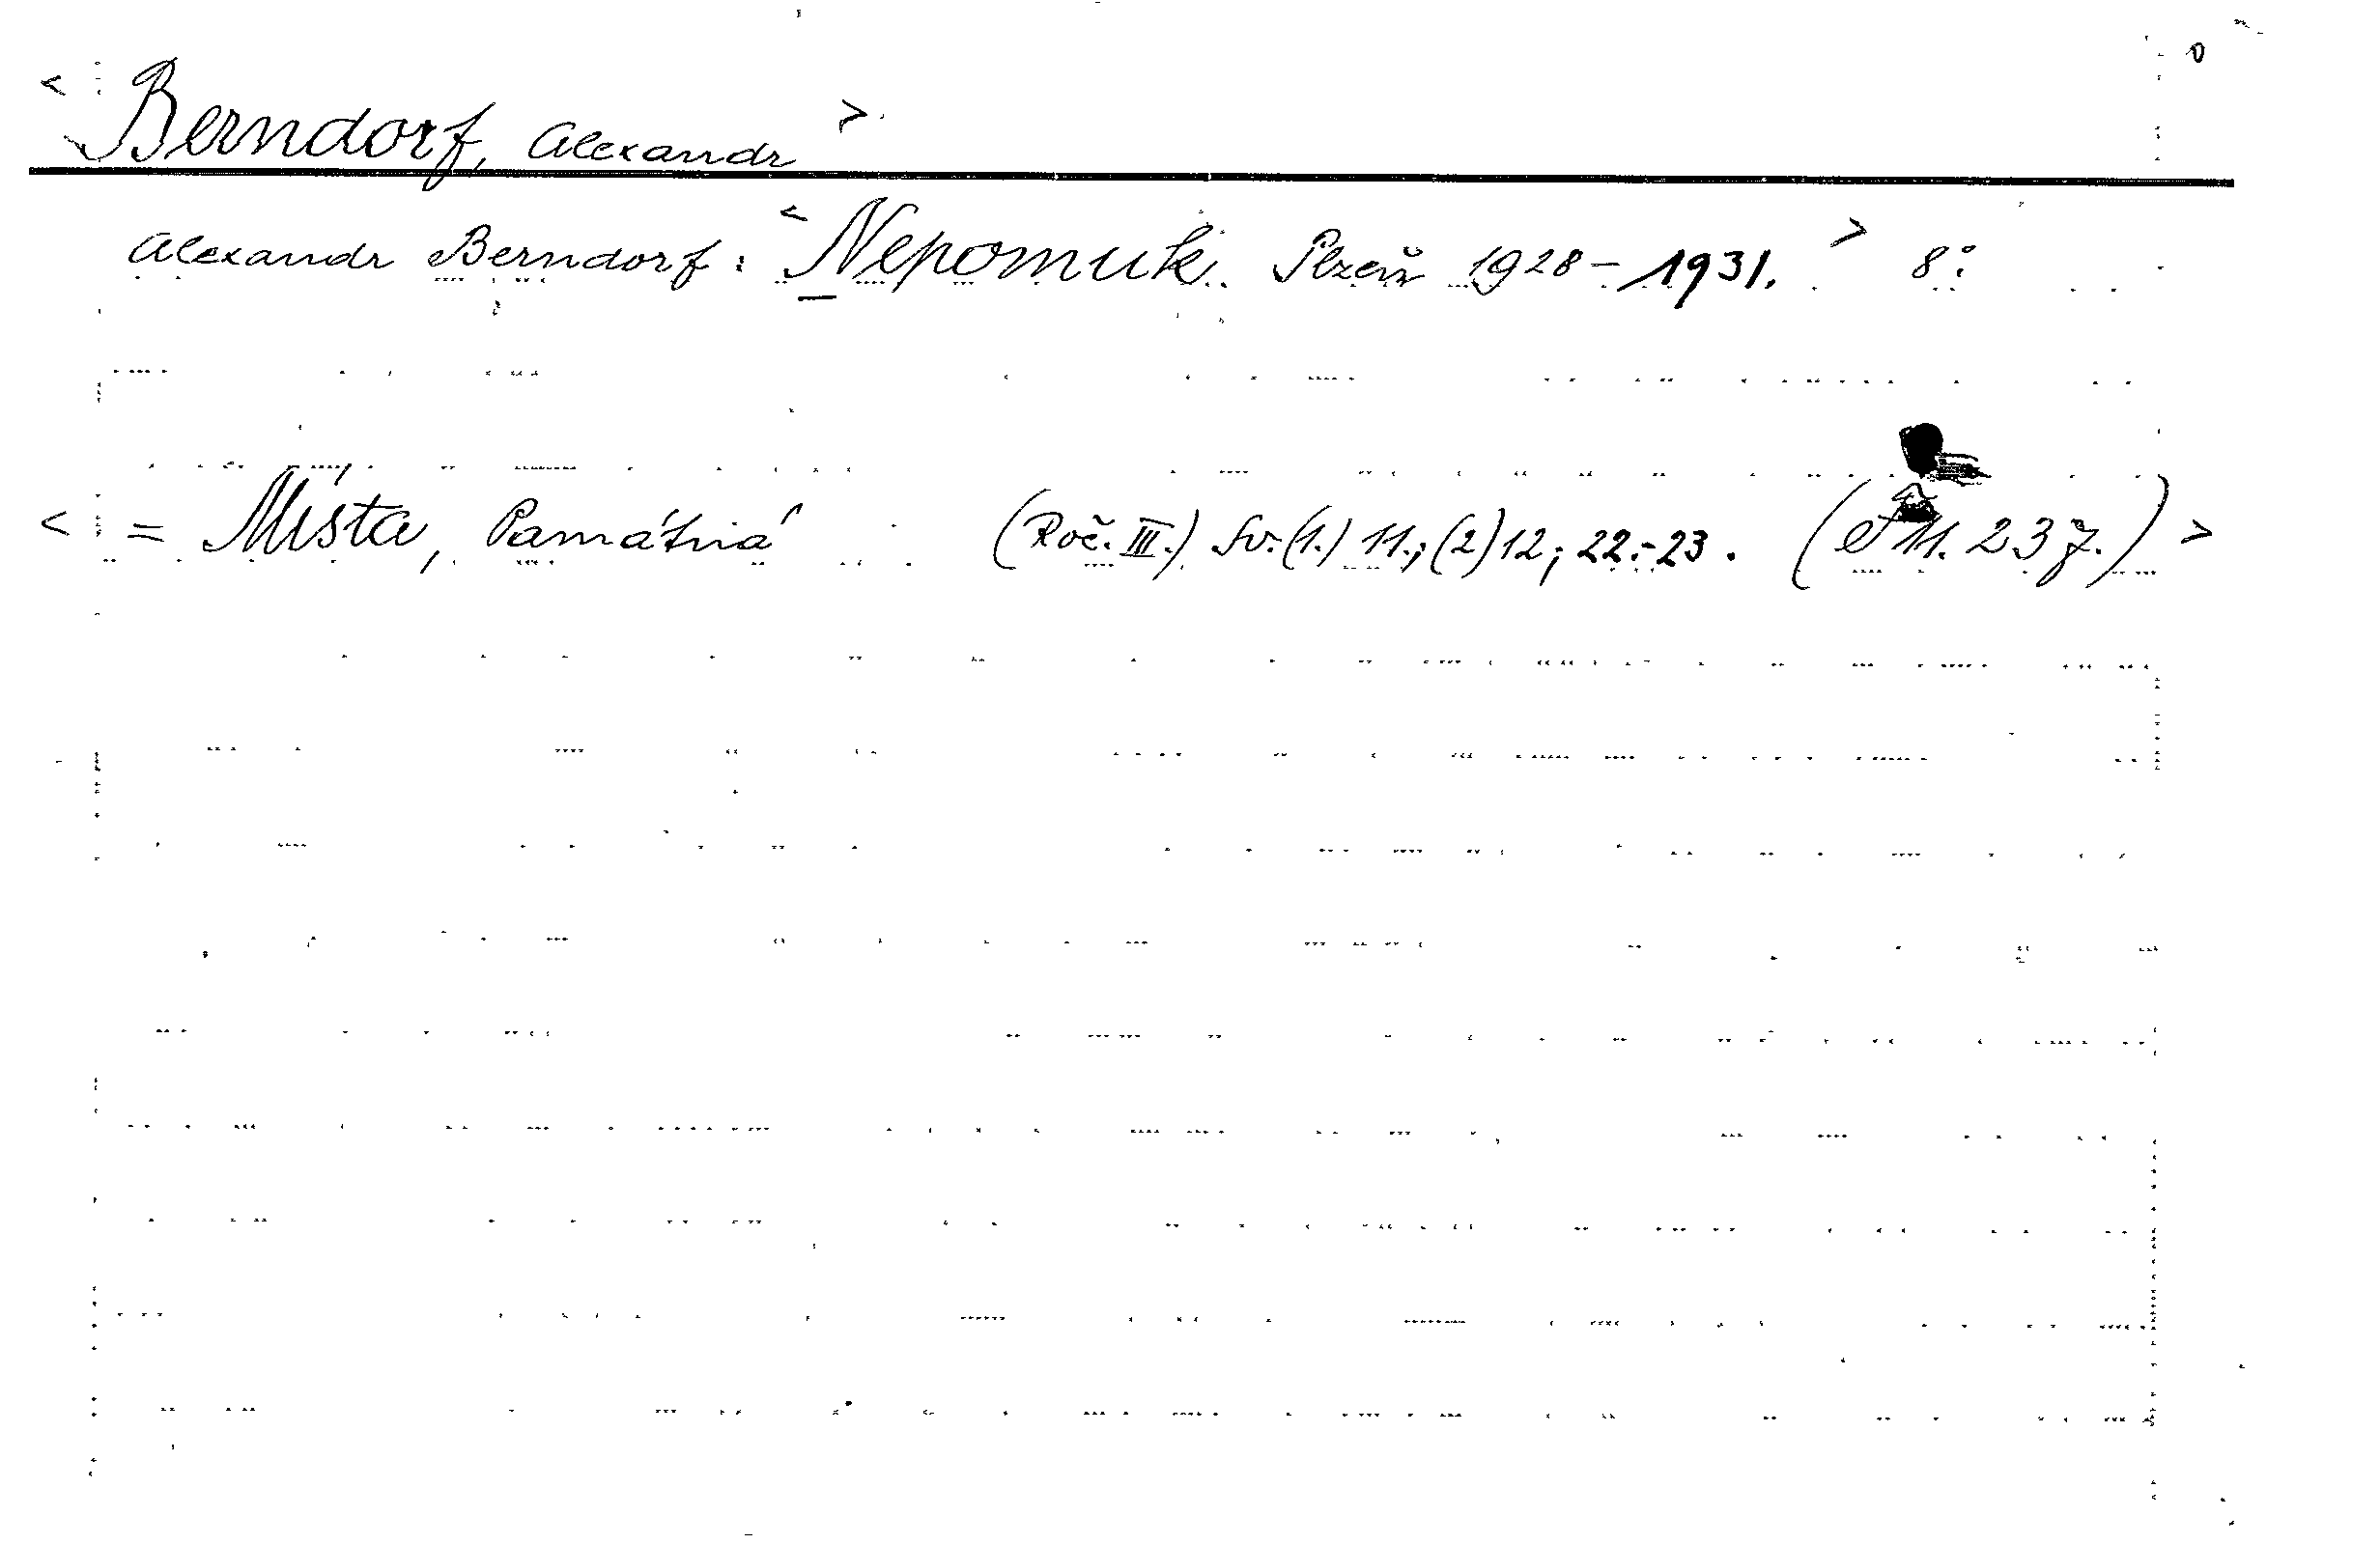 < Berndorf, Alexandr >
Alexandr Berndorf: < Nepomuk. Plzeň 1928-1931. > 8°.
< = Místa, Památná (Roč. III.) Sv. (1.) 11.; (2) 12; 22.-23. 11. 237.) >